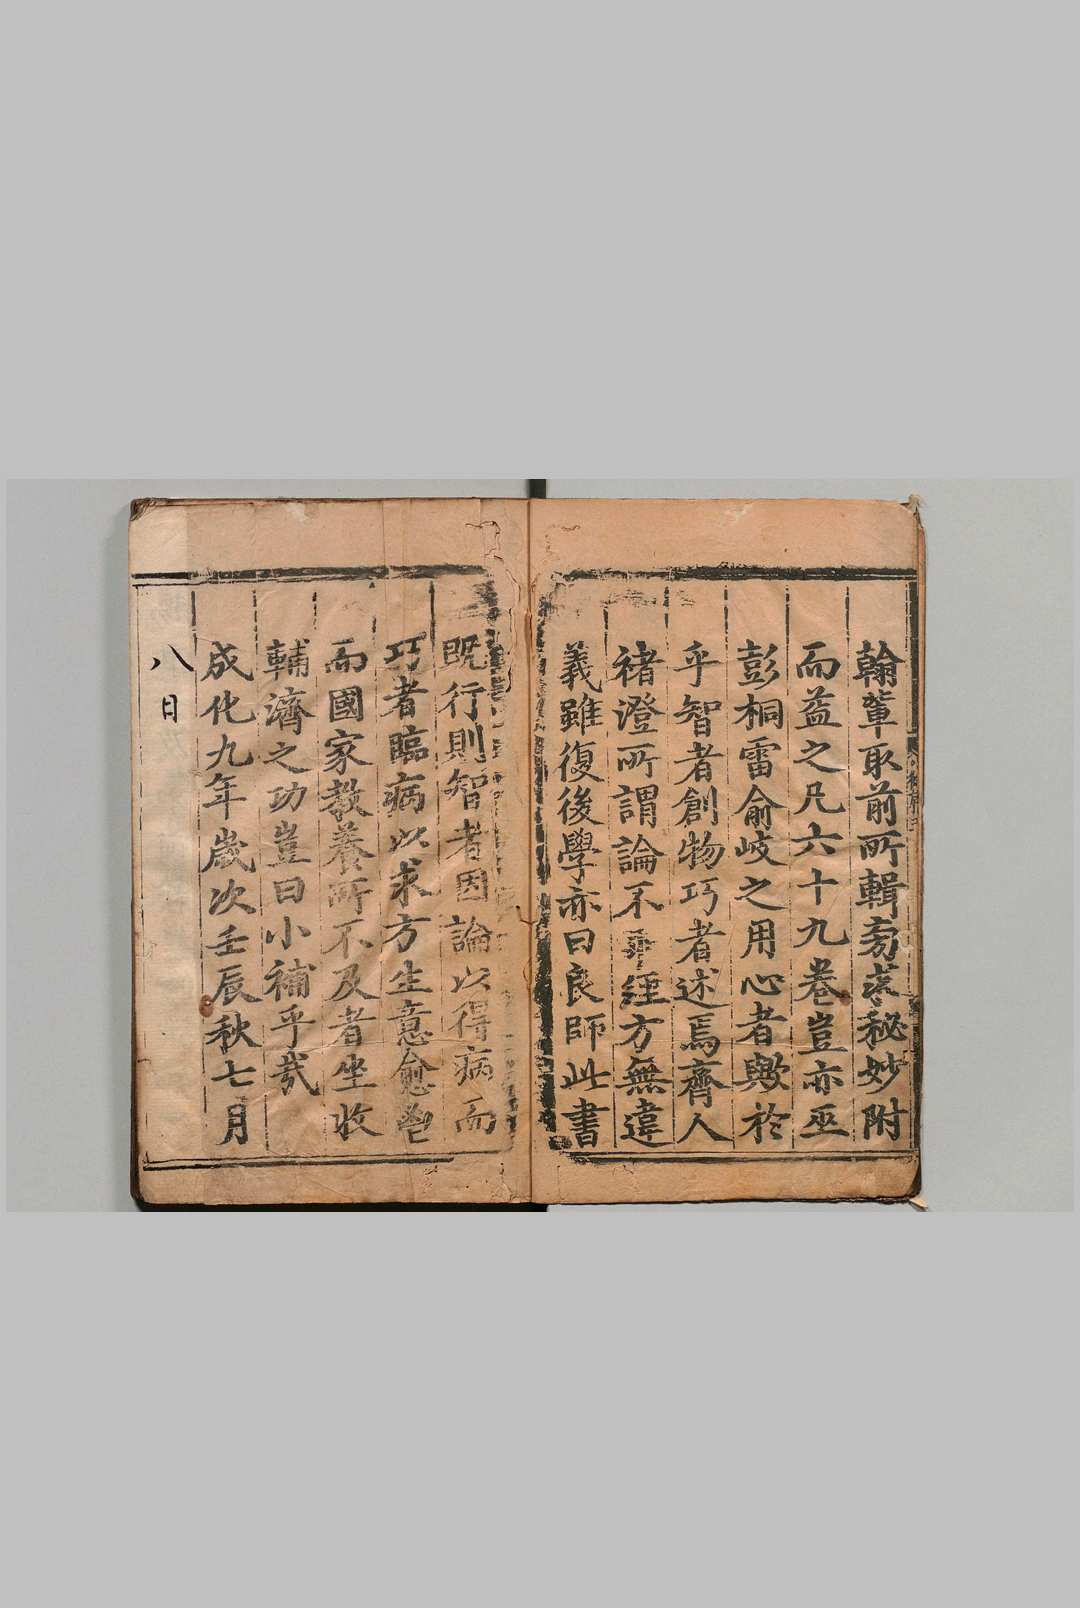 翰輩取前所輯旁蒐秘妙附
而益之凡六十九卷豈亦巫
彭桐雷俞岐之用心者歟於
乎智者創物巧者述焉齊人
褚澄所謂論不 經方無違
義雖復後學亦曰良師此書
既行則智者因論以得病而
巧者臨病以求方生意愈
而國家教養所不及者坐收
輔濟之功豈曰小補乎哉
成化九年歲次壬辰秋七月
八日